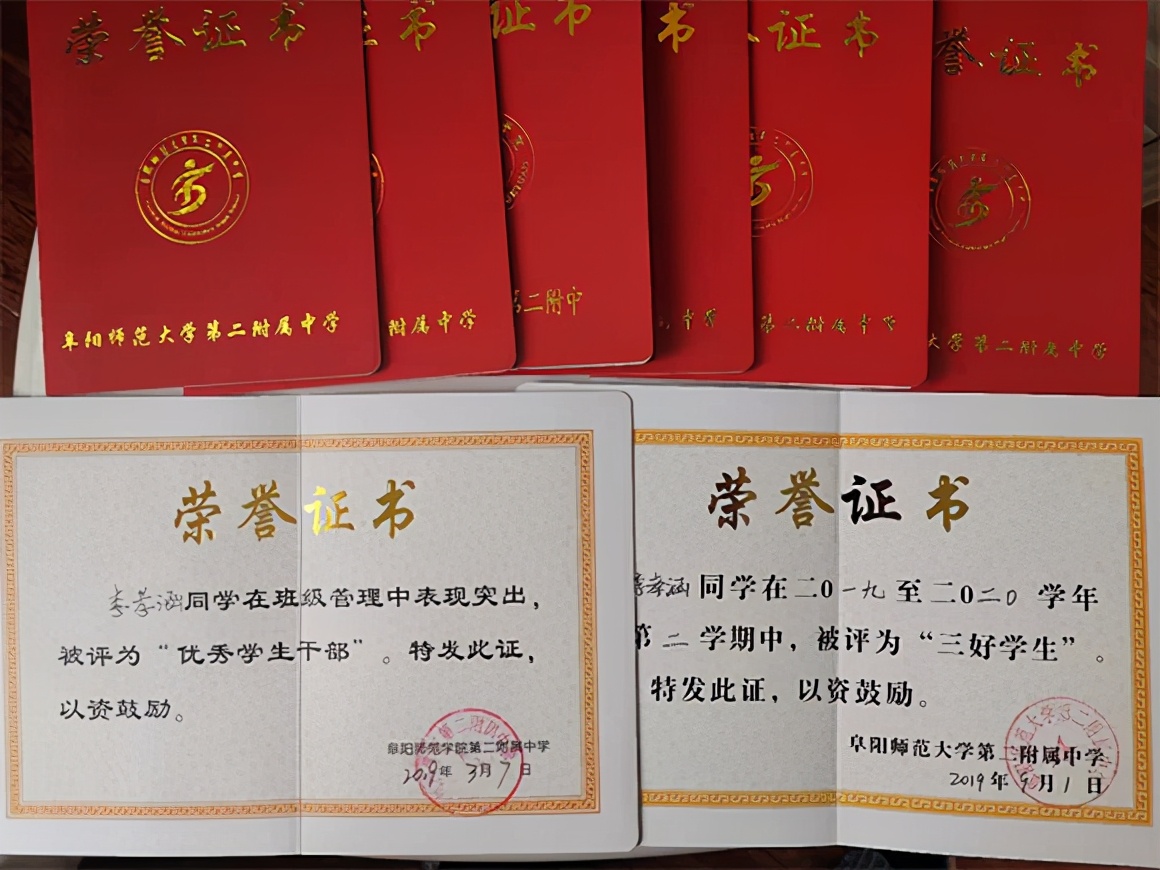 荣誉证书
证书
证书
书
证书
誉证书
阜阳师范大学第二附属中学
附属中学
第二附中
中学
第二附属中学
大学第二附属中学
荣誉证书
李孝涵同学在班级管理中表现突出，
被评为“优秀学生干部”。特发此证，
以资鼓励。
阜阳师范学院第二附属中学
2019年3月7日
荣誉证书
李孝涵同学在二0一九至二0二0学年
第二学期中，被评为“三好学生”。
特发此证，以资鼓励。
阜阳师范大学第二附属中学
2019年9月1日